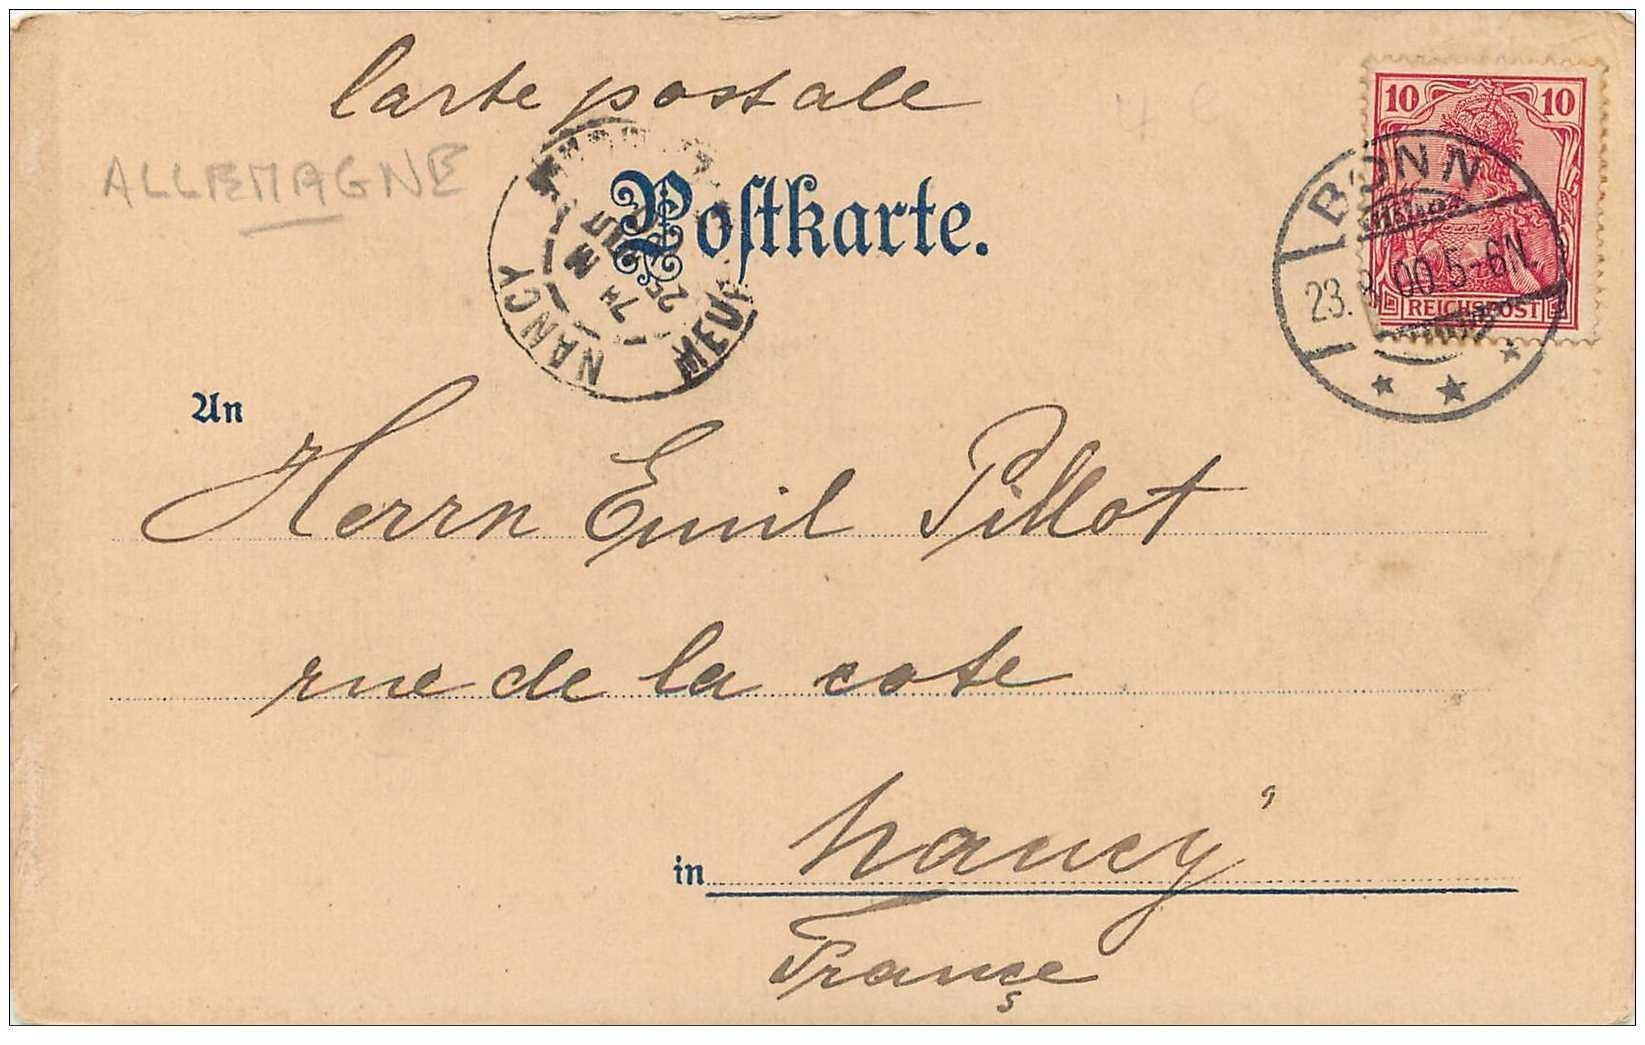 Carte postale
ALLEMAGNE
Poſtkarte.
10 10
REICHSPOST
BONN
23. 00 5-6N.
NANCY
7H M
25
An
Herrn Emil Pillot
rue de la cote
in Nancy
France